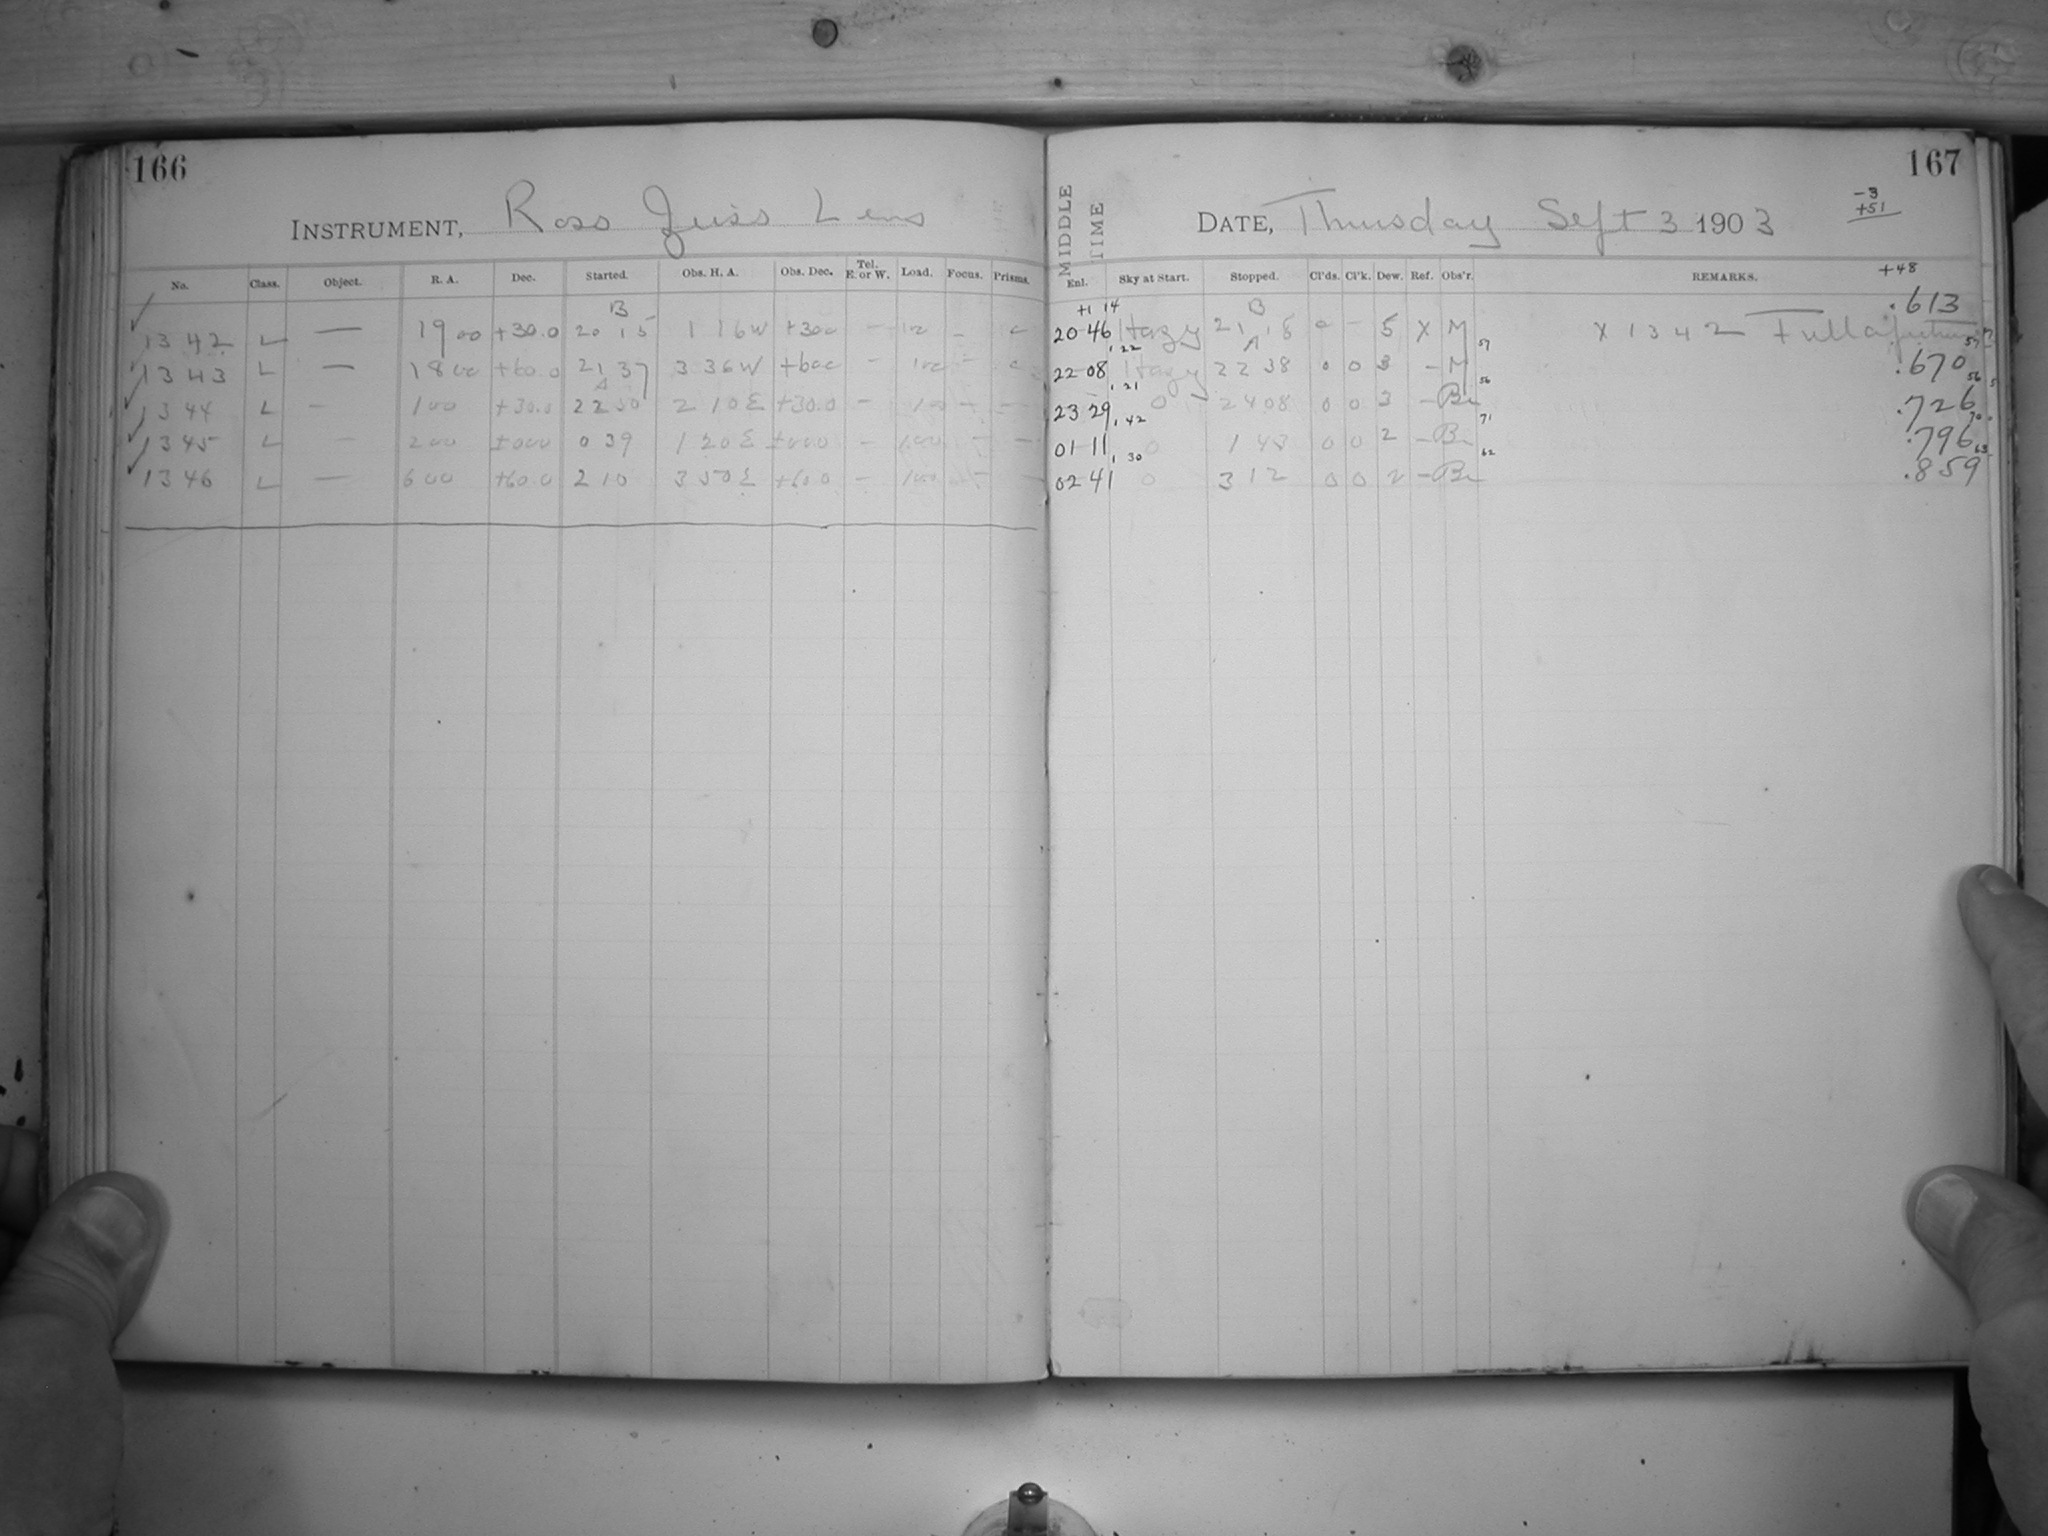 166
INSTRUMENT, Ross Zeiss Lens
No. Class. Object. R. A. Dec. Started. Obs. H. A. Obs. Dec. Tel. E. or W. Load. Focus. Prisms.
B
1342 L — 19 00 +30.0 20 15 1 16 W +300 — 100 —
1343 L — 18 00 +60.0 21 37 3 36 W +600 — 100 —
A
1344 L — 1 00 +30.0 22 50 2 10 E +30.0 — 100 — —
1345 L — 2 00 ±000 0 39 1 20 E ±000 — 100 — —
1346 L — 6 00 +60.0 2 10 3 50 E +60.0 — 100 — —
167
MIDDLE TIME
DATE, Thursday Sept 3 1903
-3
+51
+48
Enl. Sky at Start. Stopped. Cl'ds. Cl'k. Dew. Ref. Obs'r. REMARKS.
+1 14 B .613
20 46 Hazy 21 18 0 — 5 X M X 1342 Full aperture
, 22 A 57 57
22 08 Hazy 22 38 0 0 3 — M .670
, 21 56 56
23 29 0 24 08 0 0 3 — Be .726
, 42 71 70
01 11 0 1 43 0 0 2 — Be .796
, 30 62 63
02 41 0 3 12 0 0 2 — Be .859